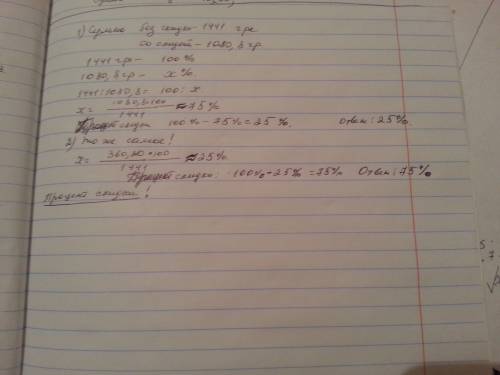 1) Сумма без скидк 1441 грн
со скидкой – 1080,8 гр
1441 грн – 100%
1080,8 гр – x %.
1441 : 1080,8 = 100 : x
x = 1080,8·100 / 1441 ≈ 75%
Процент скидки 100% - 75% = 25%. Ответ : 25%.
2) то же самое!
x = 360,20·100 / 1441 ≈ 25%
Процент скидки : 100% - 25% = 75% Ответ : 75%
Процент скидки !